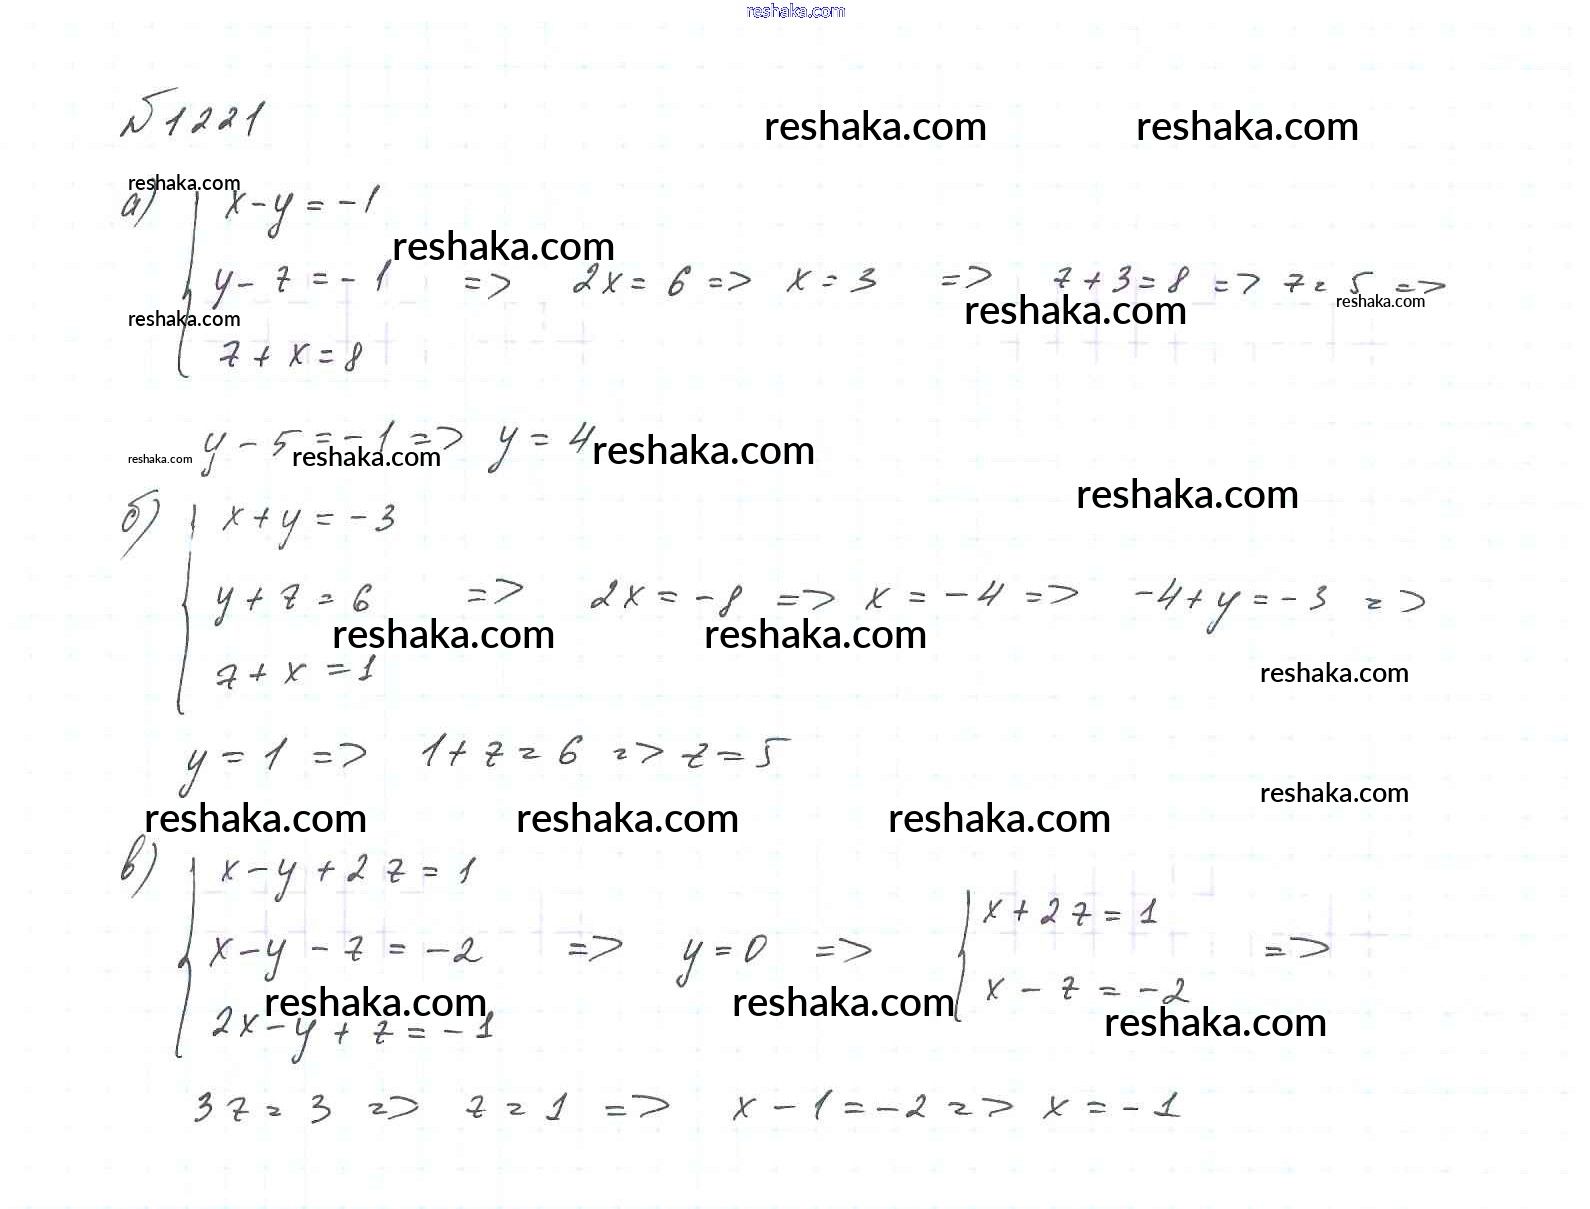 reshaka.com
№1221
reshaka.com reshaka.com
reshaka.com
а) x-y=-1
reshaka.com
y-z=-1 => 2x=6 => x=3 => z+3=8 => z=5 =>
reshaka.com reshaka.com
reshaka.com
z+x=8
y-5=-1 => y=4
reshaka.com reshaka.com reshaka.com
reshaka.com
б) x+y=-3
y+z=6 => 2x=-8 => x=-4 => -4+y=-3 =>
reshaka.com reshaka.com
z+x=1
reshaka.com
y=1 => 1+z=6 => z=5
reshaka.com
reshaka.com reshaka.com reshaka.com
в) x-y+2z=1
x+2z=1
x-y-z=-2 => y=0 => =>
x-z=-2
reshaka.com reshaka.com reshaka.com
2x-y+z=-1
3z=3 => z=1 => x-1=-2 => x=-1